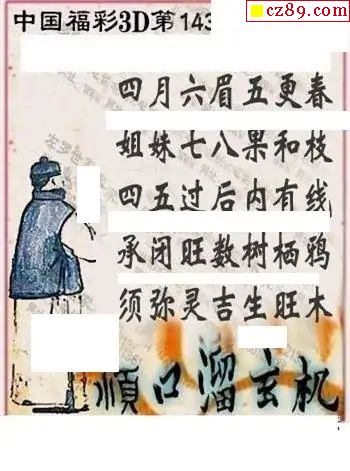 cz89.com
中国福彩3D第143
四月六眉五更春
姐妹七八果和枝
四五过后内有线
承闭旺数树栖鸦
须弥灵吉生旺木
顺口溜玄机